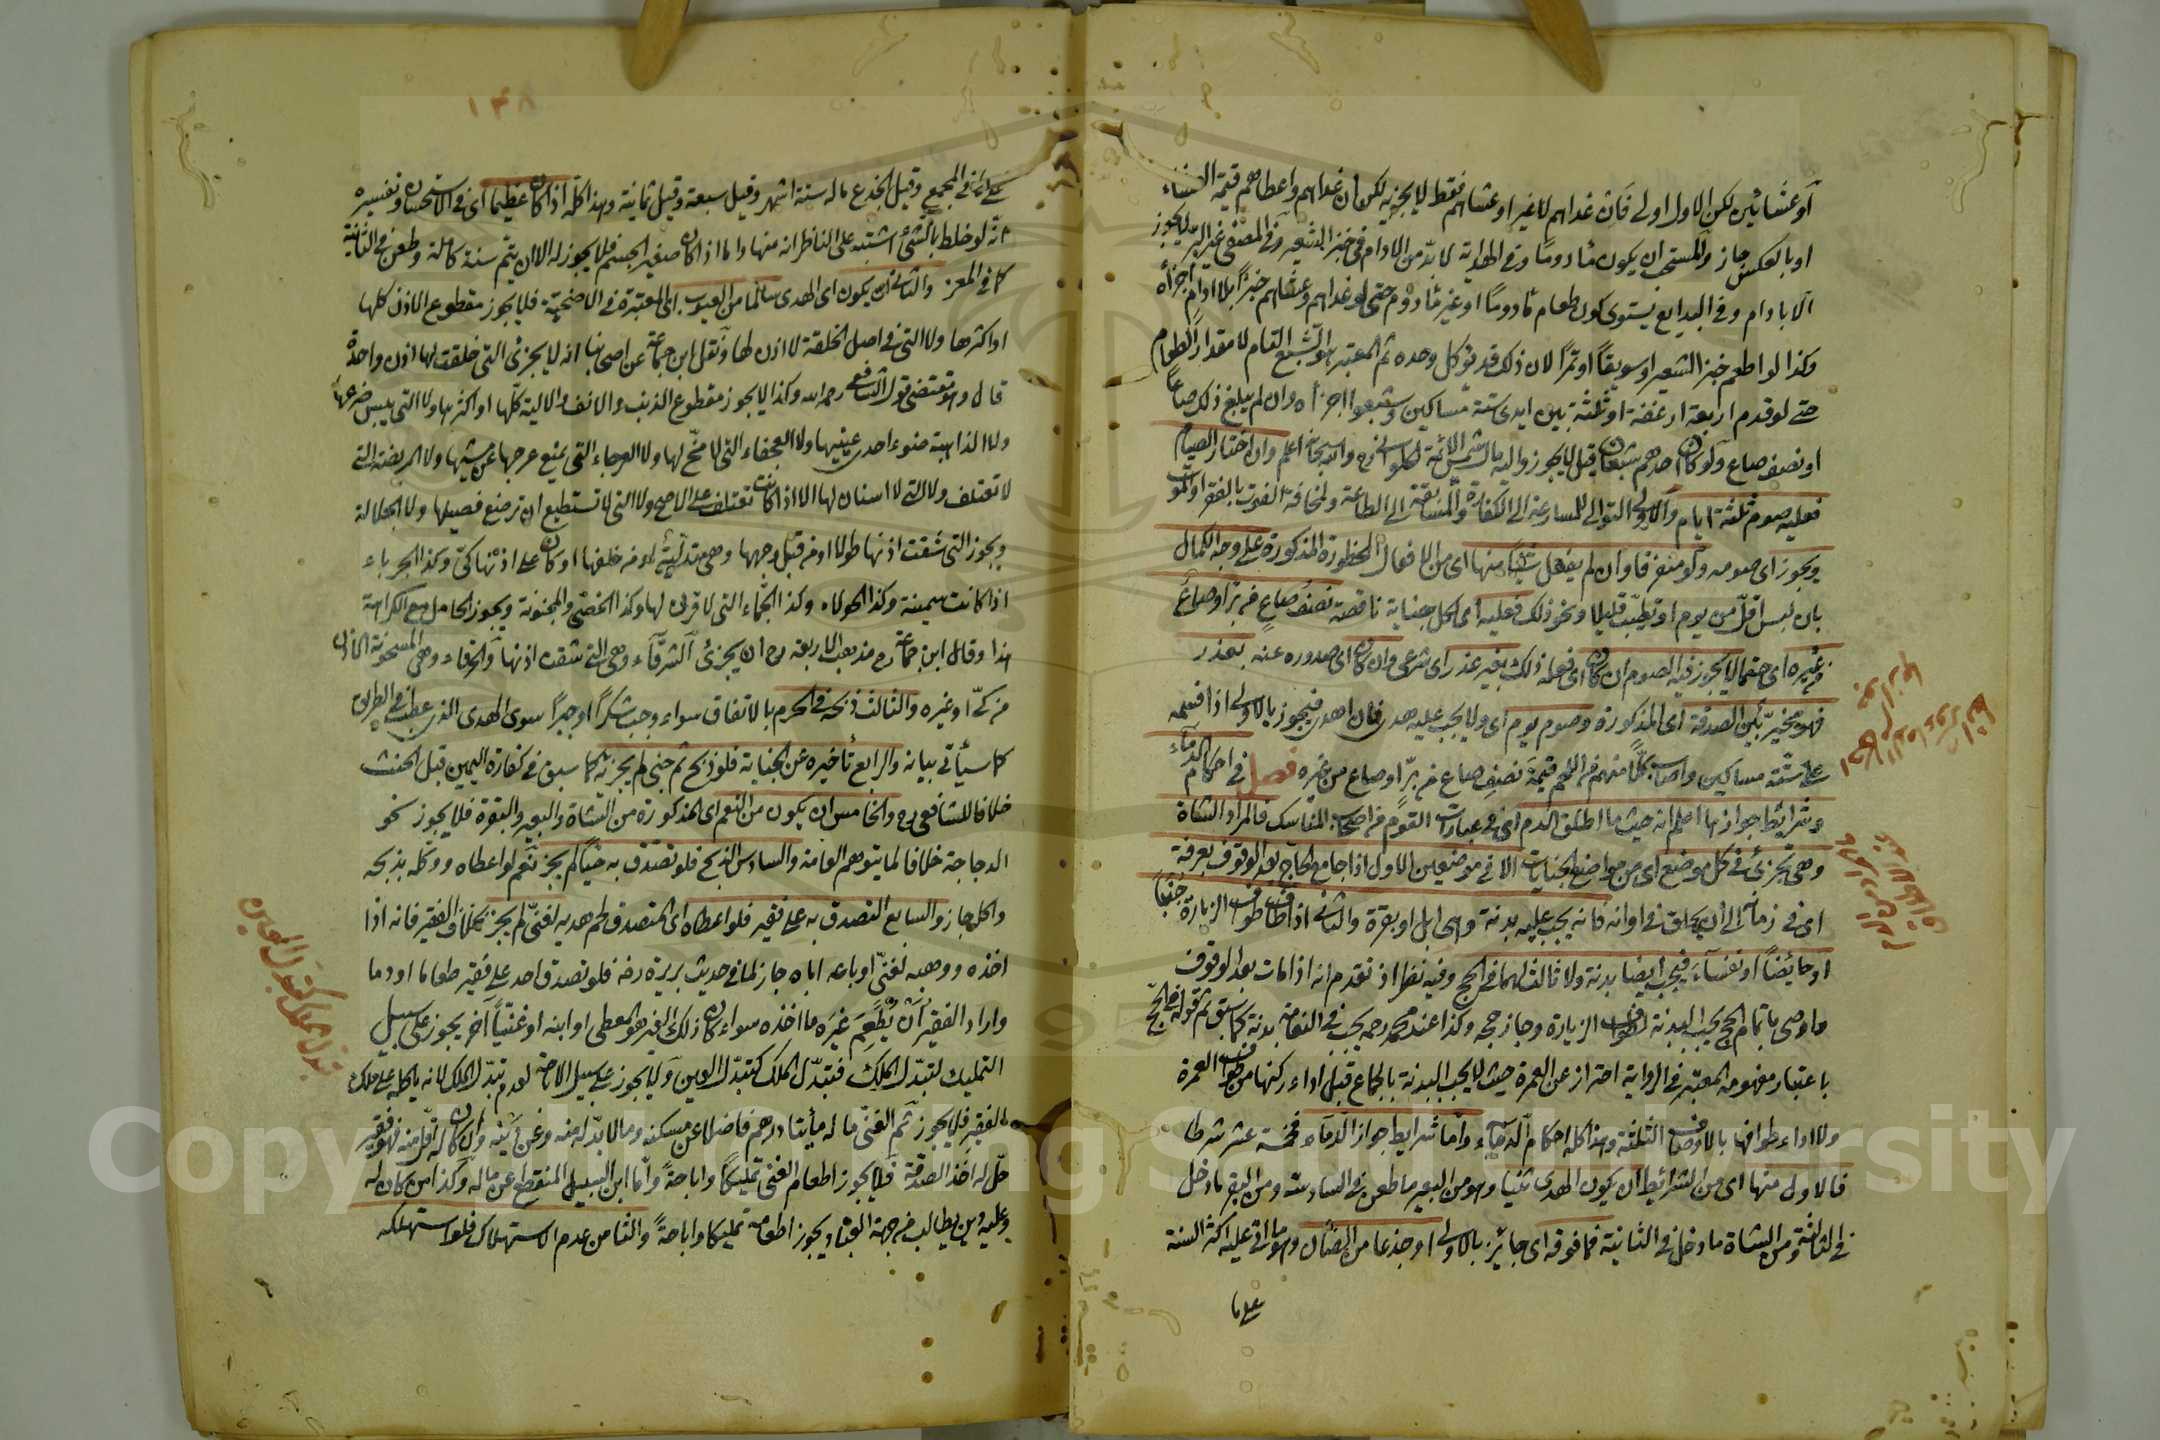 او عشائين لكن الاول اولى فان غداهم لا غير او عشاهم فقط لا يجزيه لكن ان غداهم واعطاهم قيمة العشاء
او بالعكس جاز والمستحب ان يكون مأدوما وفي الهداية لا بد من الادام في خبز الشعير وفي المصفى غير البر لا يجوز
الا بادام وفي البدايع يستوى كون الطعام مأدوما او غير مأدوم حتى لو غداهم وعشاهم خبزا بلا ادام اجزأه
وكذا لو اطعم خبز الشعير او سويقا او تمرا لان ذلك قد يؤكل وحده ثم المعتبر هو الشبع التام لا مقدار الطعام
حتى لو قدم اربعة ارغفة او ثلثة بين ايدى ستة مساكين وشبعوا اجزأه وان لم يبلغ ذلك صاعا
او نصف صاع ولو كان احدهم شبعان قيل لا يجوز واليه مال شمس الائمة الحلوانى رح والله سبحانه اعلم وان اختار الصيام
فعليه صوم ثلثة ايام والاولى التوالى للمسارعة الى الكفارة والمسابقة الى الطاعة ولمخافة الفوت بالفقر او الموت
ويجوز اى صومه ولو متفرقا وان لم يفعل شيئا منها اى من الافعال المحظورة المذكورة على وجه الكمال
بان لبس اقل من يوم او تطيب قليلا ونحو ذلك فعليه اى لكل جناية ناقصة نصف صاع من بر او صاع
من غيره اى حتما لا يجوز فيه الصوم ان كان اى فعله ذلك بغير عذر اى شرعى وان كان اى صدوره عنه بعذر
فهو مخير بين الصدقة اى المذكورة وصوم يوم اى ولا يجب عليه هدى فان اهدى فيجوز بالاولى اذا قسمه
على ستة مساكين واصاب كلا منهم من اللحم قيمة نصف صاع من بر او صاع من غيره فصل في احكام الدماء
وشرائط جوازها اعلم انه حيث ما اطلق الدم اى في عبارات القوم من اصحاب المناسك فالمراد الشاة
وهى تجزئ في كل موضع اى من مواضع الجنايات الا في موضعين الاول اذا جامع الحاج بعد الوقوف بعرفة
اى في زمانه الى ان يحلق في اوانه فانه يجب عليه بدنة وهى ابل او بقرة والثانى اذا طاف طواف الزيارة جنبا
او حائضا او نفساء فيجب ايضا بدنة ولا ثالث لهما في الحج وفيه نظر اذ تقدم انه اذا مات بعد الوقوف
واوصى باتمام الحج يجب البدنة لطواف الزيارة وجاز حجه وكذا عند محمد رحمه يجب في النعامة بدنة كما سبق ثم قوله في الحج
باعتبار مفهومه المعتبر في الرواية احتراز عن العمرة حيث لا يجب البدنة بالجماع قبل اداء ركنها من طواف العمرة
ولا اداء طوافها بالاوصاف الثلثة وهذا كله احكام الدماء واما شرايط جواز الدماء فخمسة عشر شرطا
فالاول منها اى من الشرائط ان يكون الهدى ثنيا وهو من البعير ما طعن في السادسة ومن البقر ما دخل
في الثالثة ومن الشاة ما دخل في الثانية فما فوقه اى جائز بالاولى او جذعا من الضأن وهو ما اتى عليه اكثر السنة
على ما
١٣٨
على ما في المجمع وقيل الجذع ماله ستة اشهر وقيل سبعة وقيل ثمانية وهذا كله اذا كان عظيما اى في الاستحسان وتفسيره
انه لو خلط بالشئ اشتبه على الناظر انه منها واما اذا كان صغير الجسم فلا يجوز له الا ان يتم سنة كاملة وطعن في الثانية
كما في المعز والثانى ان يكون اى الهدى سالما من العيوب اى المعتبرة في الاضحية فلا يجوز مقطوع الاذن كلها
او اكثرها ولا التى في اصل الخلقة لا اذن لها ونقل ابن جماعة عن اصحابنا انه لا يجزئ التى خلقت لها اذن واحدة
قال وهو مقتضى قول الشافعى رحمه الله وكذا لا يجوز مقطوع الذنب والانف والالية كلها او اكثرها ولا التى يبس ضرعها
ولا الذاهبة ضوء احدى عينيها ولا العجفاء التى لا مخ لها ولا العرجاء التى يمنع عرجها عن مشيها ولا المريضة التى
لا تعتلف ولا التى لا اسنان لها الا اذا كانت تعتلف على الاصح ولا التى لا تستطيع ان ترضع فصيلها ولا الجلالة
ويجوز التى شقت اذنها طولا او من قبل وجهها وهى متدلية او من خلفها او كان على اذنها كى وكذا الجرباء
اذا كانت سمينة وكذا الحولاء وكذا الجماء التى لا قرن لها وكذا الخصى والمجنونة ويجوز الحامل مع الكراهة
هذا وقال ابن جماعة رح مذهب الاربعة رح ان يجزئ الشرقاء وهى التى شقت اذنها والخرقاء وهى المخروقة الاذن
من كى او غيره والثالث ذبحه في الحرم بالاتفاق سواء وجب شكرا او جبرا سوى الهدى الذى عطب في الطريق
كما سيأتى بيانه والرابع تأخيره عن الجناية فلو ذبح ثم جنى لم يجزئه كما سبق في كفارة اليمين قبل الحنث
خلافا للشافعى رح والخامس ان يكون من النعم اى المذكورة من الشاة والبعير والبقرة فلا يجوز نحو
الدجاجة خلافا لما يتوهم العامة والسادس الذبح فلو تصدق به حيا لم يجز نعم لو اعطاه ووكله بذبحه
واكل جاز والسابع التصدق به على فقير فلو اعطاه اى تصدق لحم هديه لغنى لم يجز بخلاف الفقير فانه اذا
اخذه ووهبه لغنى او باعه اياه جاز لما في حديث بريرة رضه فلو تصدق احد على فقير طعاما او دما
واراد الفقير ان يطعم غيره ما اخذه سواء كان ذلك الغير هو المعطى او ابنه او غنيا آخر يجوز على سبيل
التمليك لتبدل الملك فتبدل الملك كتبدل العين ولا يجوز على سبيل الاباحة لعدم تبدل الملك لانه يأكله على ملك
الفقير فلا يجوز ثم الغنى ما له مأيتا درهم فاضلا عن مسكنه وما لا بد له منه وعن دينه وان كان له اقل منه فهو فقير
حل له اخذ الصدقة فلا يجوز اطعام الغنى تمليكا واباحة واما ابن السبيل المنقطع عن ماله وكذا من كان له
وعليه دين يطالب من جهة العباد يجوز اطعامه تمليكا واباحة والثامن عدم الاستهلاك فلو استهلكه
تبدل الملك كتبدل العين
Copyright © King Saud University